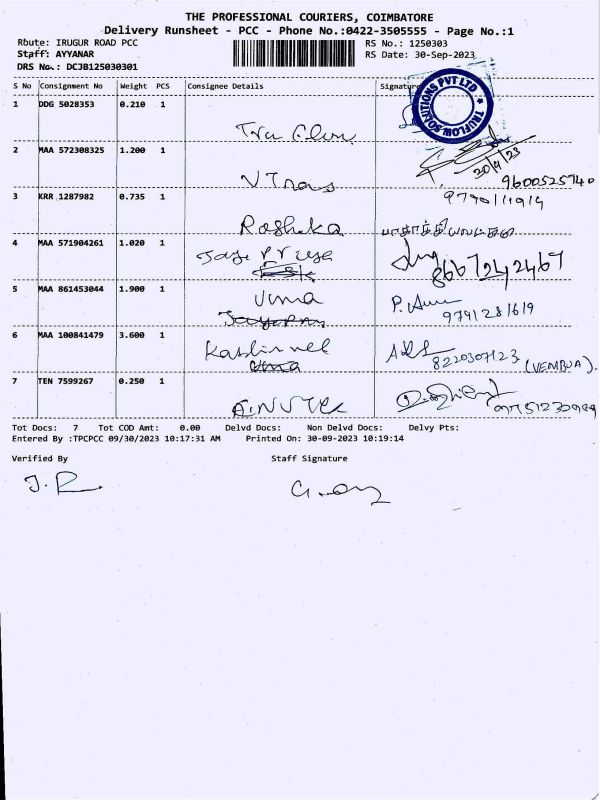 THE PROFESSIONAL COURIERS, COIMBATORE
Delivery Runsheet - PCC - Phone No.:0422-3505555 - Page No.:1
Route: IRUGUR ROAD PCC
RS No.: 1250303
Staff: AYYANAR
RS Date: 30-Sep-2023
DRS No.: DCJB125030301
S No Consignment No Weight PCS Consignee Details Signature
TRUFLOW SOLUTIONS PVT LTD
1 DDG 5028353 0.210 1
2 MAA 572308325 1.200 1 V Trans
9600525740
3 KRR 1287982 0.735 1 Roshika
9790111919
4 MAA 571904261 1.020 1
8667242467
5 MAA 861453044 1.900 1 Uma
9791281619
6 MAA 100841479 3.600 1
8220307123 (VEMBUA).
7 TEN 7599267 0.250 1
Tot Docs: 7 Tot COD Amt: 0.00 Delvd Docs: Non Delvd Docs: Delvy Pts:
Entered By :TPCPCC 09/30/2023 10:17:31 AM Printed On: 30-09-2023 10:19:14
Verified By Staff Signature